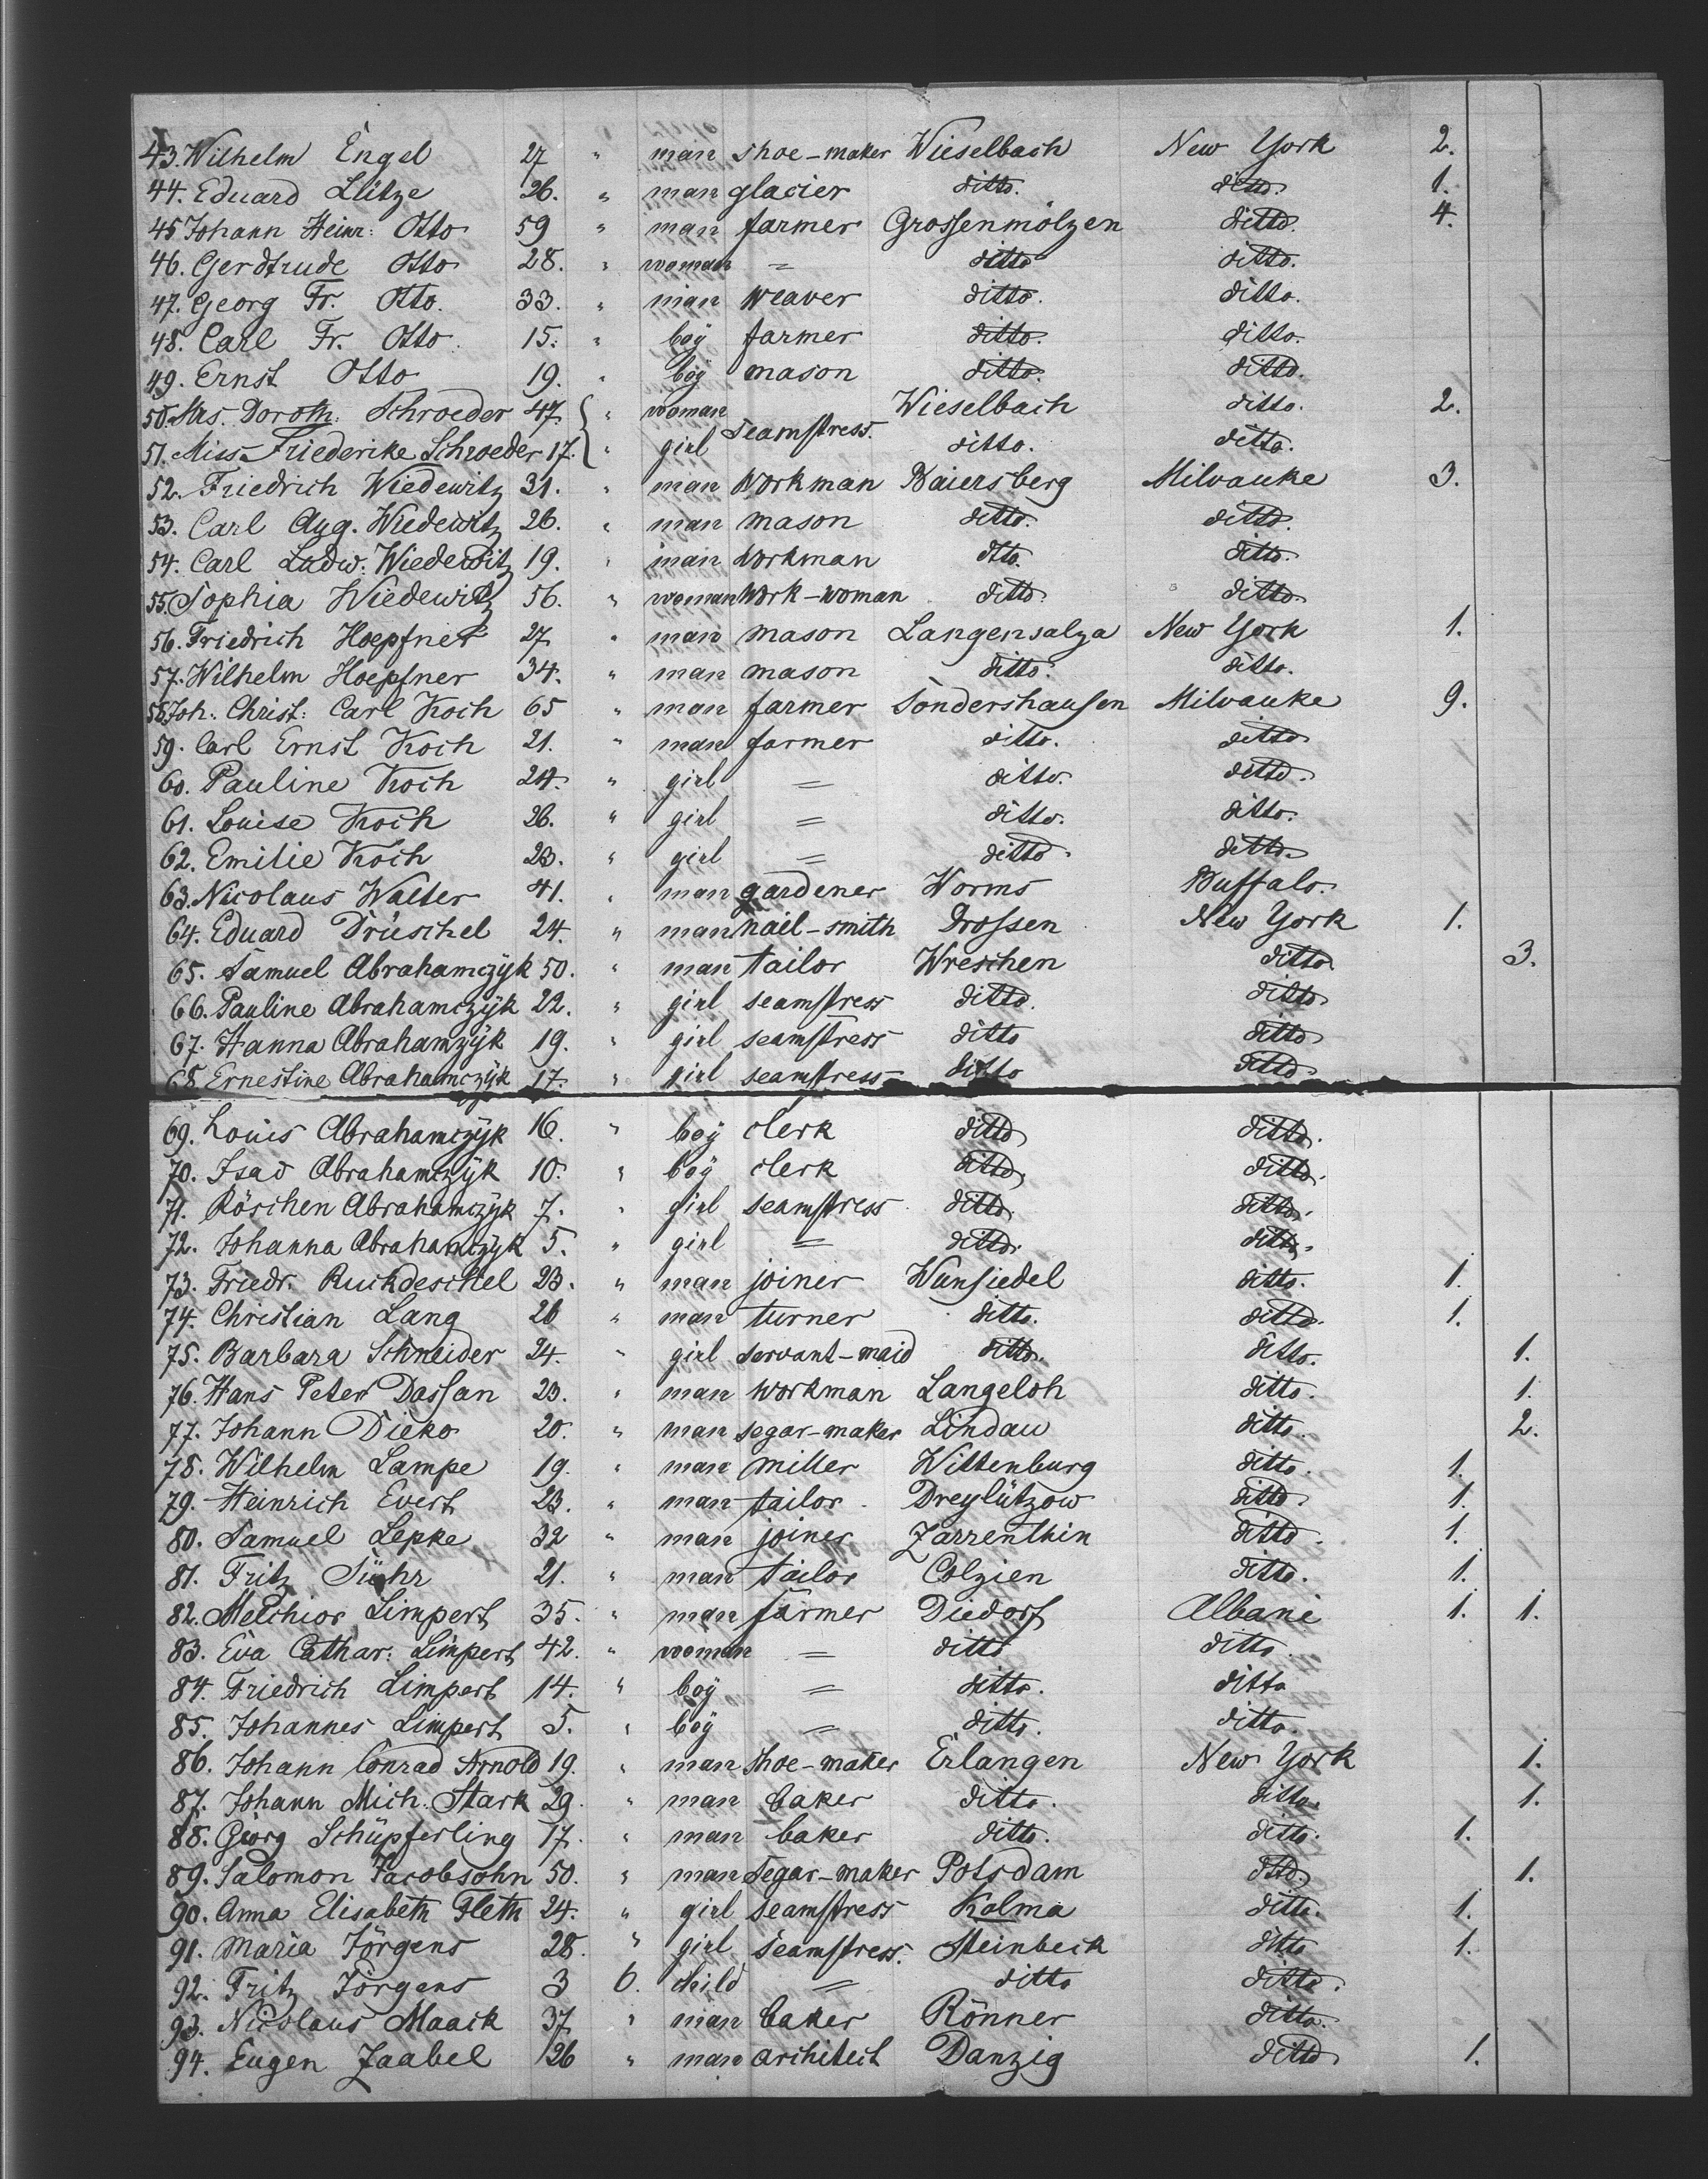 43. Wilhelm Engel 27 " man shoe-maker Wieselbach New York 2.
44. Eduard Llitze 26. " man glacier ditto. ditto. 1.
45 Johann Heinr: Otto 59 " man farmer Grossenmölzen ditto. 4.
46. Gerdtrude Otto 28. " woman = ditto ditto.
47. Georg Fr. Otto. 33. " man weaver ditto. ditto.
48. Carl Fr. Otto. 15. " boy farmer ditto. ditto.
49. Ernst Otto 19. " boy mason ditto. ditto.
50. Mrs. Doroth: Schroeder 47. { " woman Wieselbach ditto. 2.
51. Miss Friederike Schroeder 17. { " girl seamstress. ditto. ditto.
52. Friedrich Wiedewitz 31. " man workman Baiersberg Milvauke 3.
53. Carl Aug. Wiedewitz 26. " man mason ditto. ditto.
54. Carl Ludw: Wiedewitz 19. " man workman dtto. ditto.
55. Sophia Wiedewitz 56. " woman work-woman ditto. ditto.
56. Friedrich Hoepfner 27 " man mason Langensalza New York 1.
57. Wilhelm Hoepfner 34. " man mason ditto. ditto.
58. Joh. Christ: Carl Koch 65 " man farmer Sondershausen Milvauke 9.
59. Carl Ernst Koch 21. " man farmer ditto. ditto
60. Pauline Koch 24. " girl = ditto. ditto.
61. Louise Koch 26. " girl = ditto. ditto.
62. Emilie Koch 23. " girl = ditto. ditto.
63. Nicolaus Walter 41. " man gardener Worms Buffalo.
64. Eduard Drüschel 24. " man nail-smith Drossen New York 1.
65. Samuel Abrahamczyk 50. " man tailor Wreschen ditto. 3.
66. Pauline Abrahamczyk 22. " girl seamstress ditto. ditto.
67. Hanna Abrahamzyk 19. " girl seamstress ditto ditto
68 Ernestine Abrahamczyk 17. " girl seamstress ditto ditto
69. Louis Abrahamczyk 16. " boy clerk ditto ditto.
70. Isad Abrahamczyk 10. " boy clerk ditto. ditto.
71. Röschen Abrahamczyk 7. " girl seamstress ditto. ditto.
72. Johanna Abrahamczyk 5. " girl = ditto. ditto.
73. Friedr. Ruckdeschel 23. " man joiner Wunsiedel ditto. 1.
74. Christian Lang 26 " man turner ditto. ditto. 1.
75. Barbara Schneider 24. " girl servant-maid ditto. ditto. 1.
76. Hans Peter Dassan 23. " man workman Langeloh ditto. 1.
77. Johann Dieko 20. " man segar-maker Lindau ditto. 2.
78. Wilhelm Lampe 19. " man miller Wittenburg ditto. 1.
79. Heinrich Evert 23. " man tailor. Dreylützow ditto. 1.
80. Samuel Lepke 32 " man joiner Zarrenthin ditto. 1.
81. Fritz Sühr 21. " man tailor Colzien ditto. 1.
82. Melchior Limpert 35. " man farmer Diedorf Albani 1. 1.
83. Eva Cathar: Limpert 42. " woman = ditto ditto.
84. Friedrich Limpert 14. " boy = ditto. ditto
85. Johannes Limpert 5. " boy = ditto. ditto.
86. Johann Conrad Arnold 19. " man shoe-maker Erlangen New York 1.
87. Johann Mich. Stark 29. " man baker ditto. ditto. 1.
88. Georg Schüpferling 17. " man baker ditto. ditto. 1.
89. Salomon Jacobsohn 50. " man segar-maker Potsdam ditto. 1.
90. Anna Elisabeth Fleth 24. " girl seamstress Kolma ditto. 1.
91. Maria Jörgens 28. " girl seamstress. Steinbeck ditto 1.
92. Fritz Jörgens 3 6. child = ditto ditto.
93. Nicolaus Maack 37 " man baker Rönner ditto.
94. Eugen Zaabel 26 " man architect Danzig ditto 1.